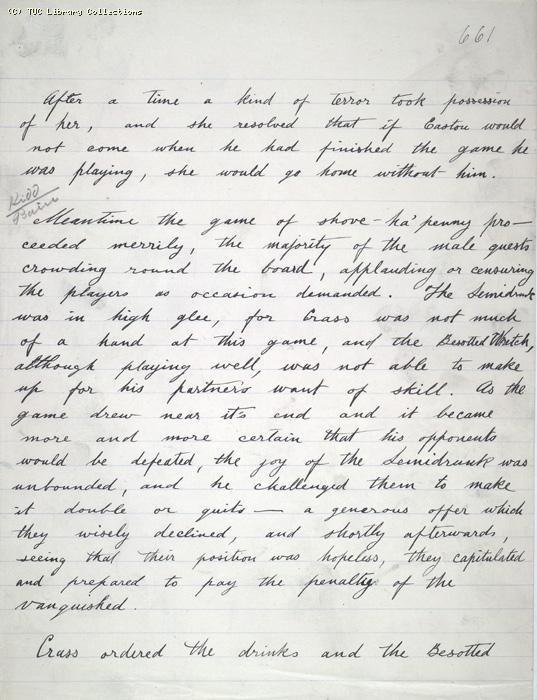 (C) TUC Library Collections
661
After a time a kind of terror took possession
of her, and she resolved that if Easton would
not come when he had finished the game he
was playing, she would go home without him.
Kidd
Meantime the game of shove-ha'penny pro-
ceeded merrily, the majority of the male guests
crowding round the board, applauding or censuring
the players as occasion demanded. The Semidrunk
was in high glee, for Crass was not much
of a hand at this game, and the Besotted Wretch,
although playing well, was not able to make
up for his partner's want of skill. As the
game drew near it's end and it became
more and more certain that his opponents
would be defeated, the joy of the Semidrunk was
unbounded, and he challenged them to make
it double or quits — a generous offer which
they wisely declined, and shortly afterwards,
seeing that their position was hopeless, they capitulated
and prepared to pay the penalty of the
vanquished.
Crass ordered the drinks and the Besotted